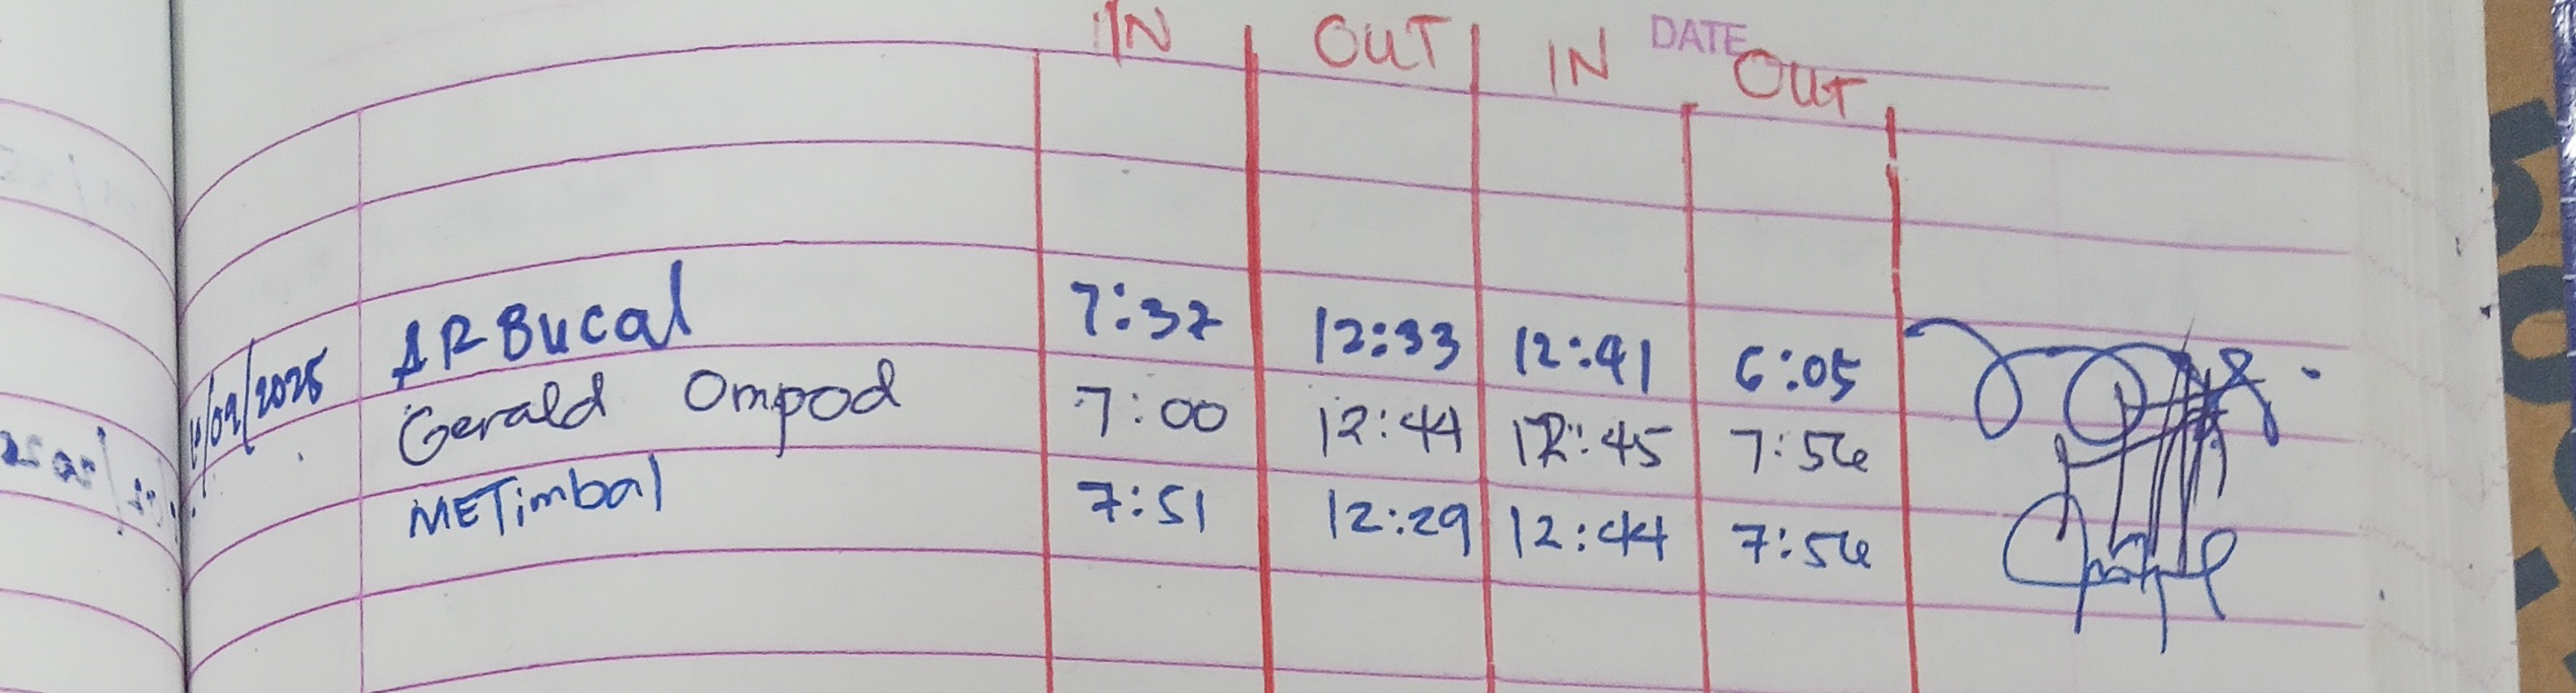 IN OUT IN OUT
DATE
ARBucal 7:37 12:33 12:41 6:05
/09/2025 Gerald Ompod 7:00 12:44 12:45 7:56
METimbal 7:51 12:29 12:44 7:56